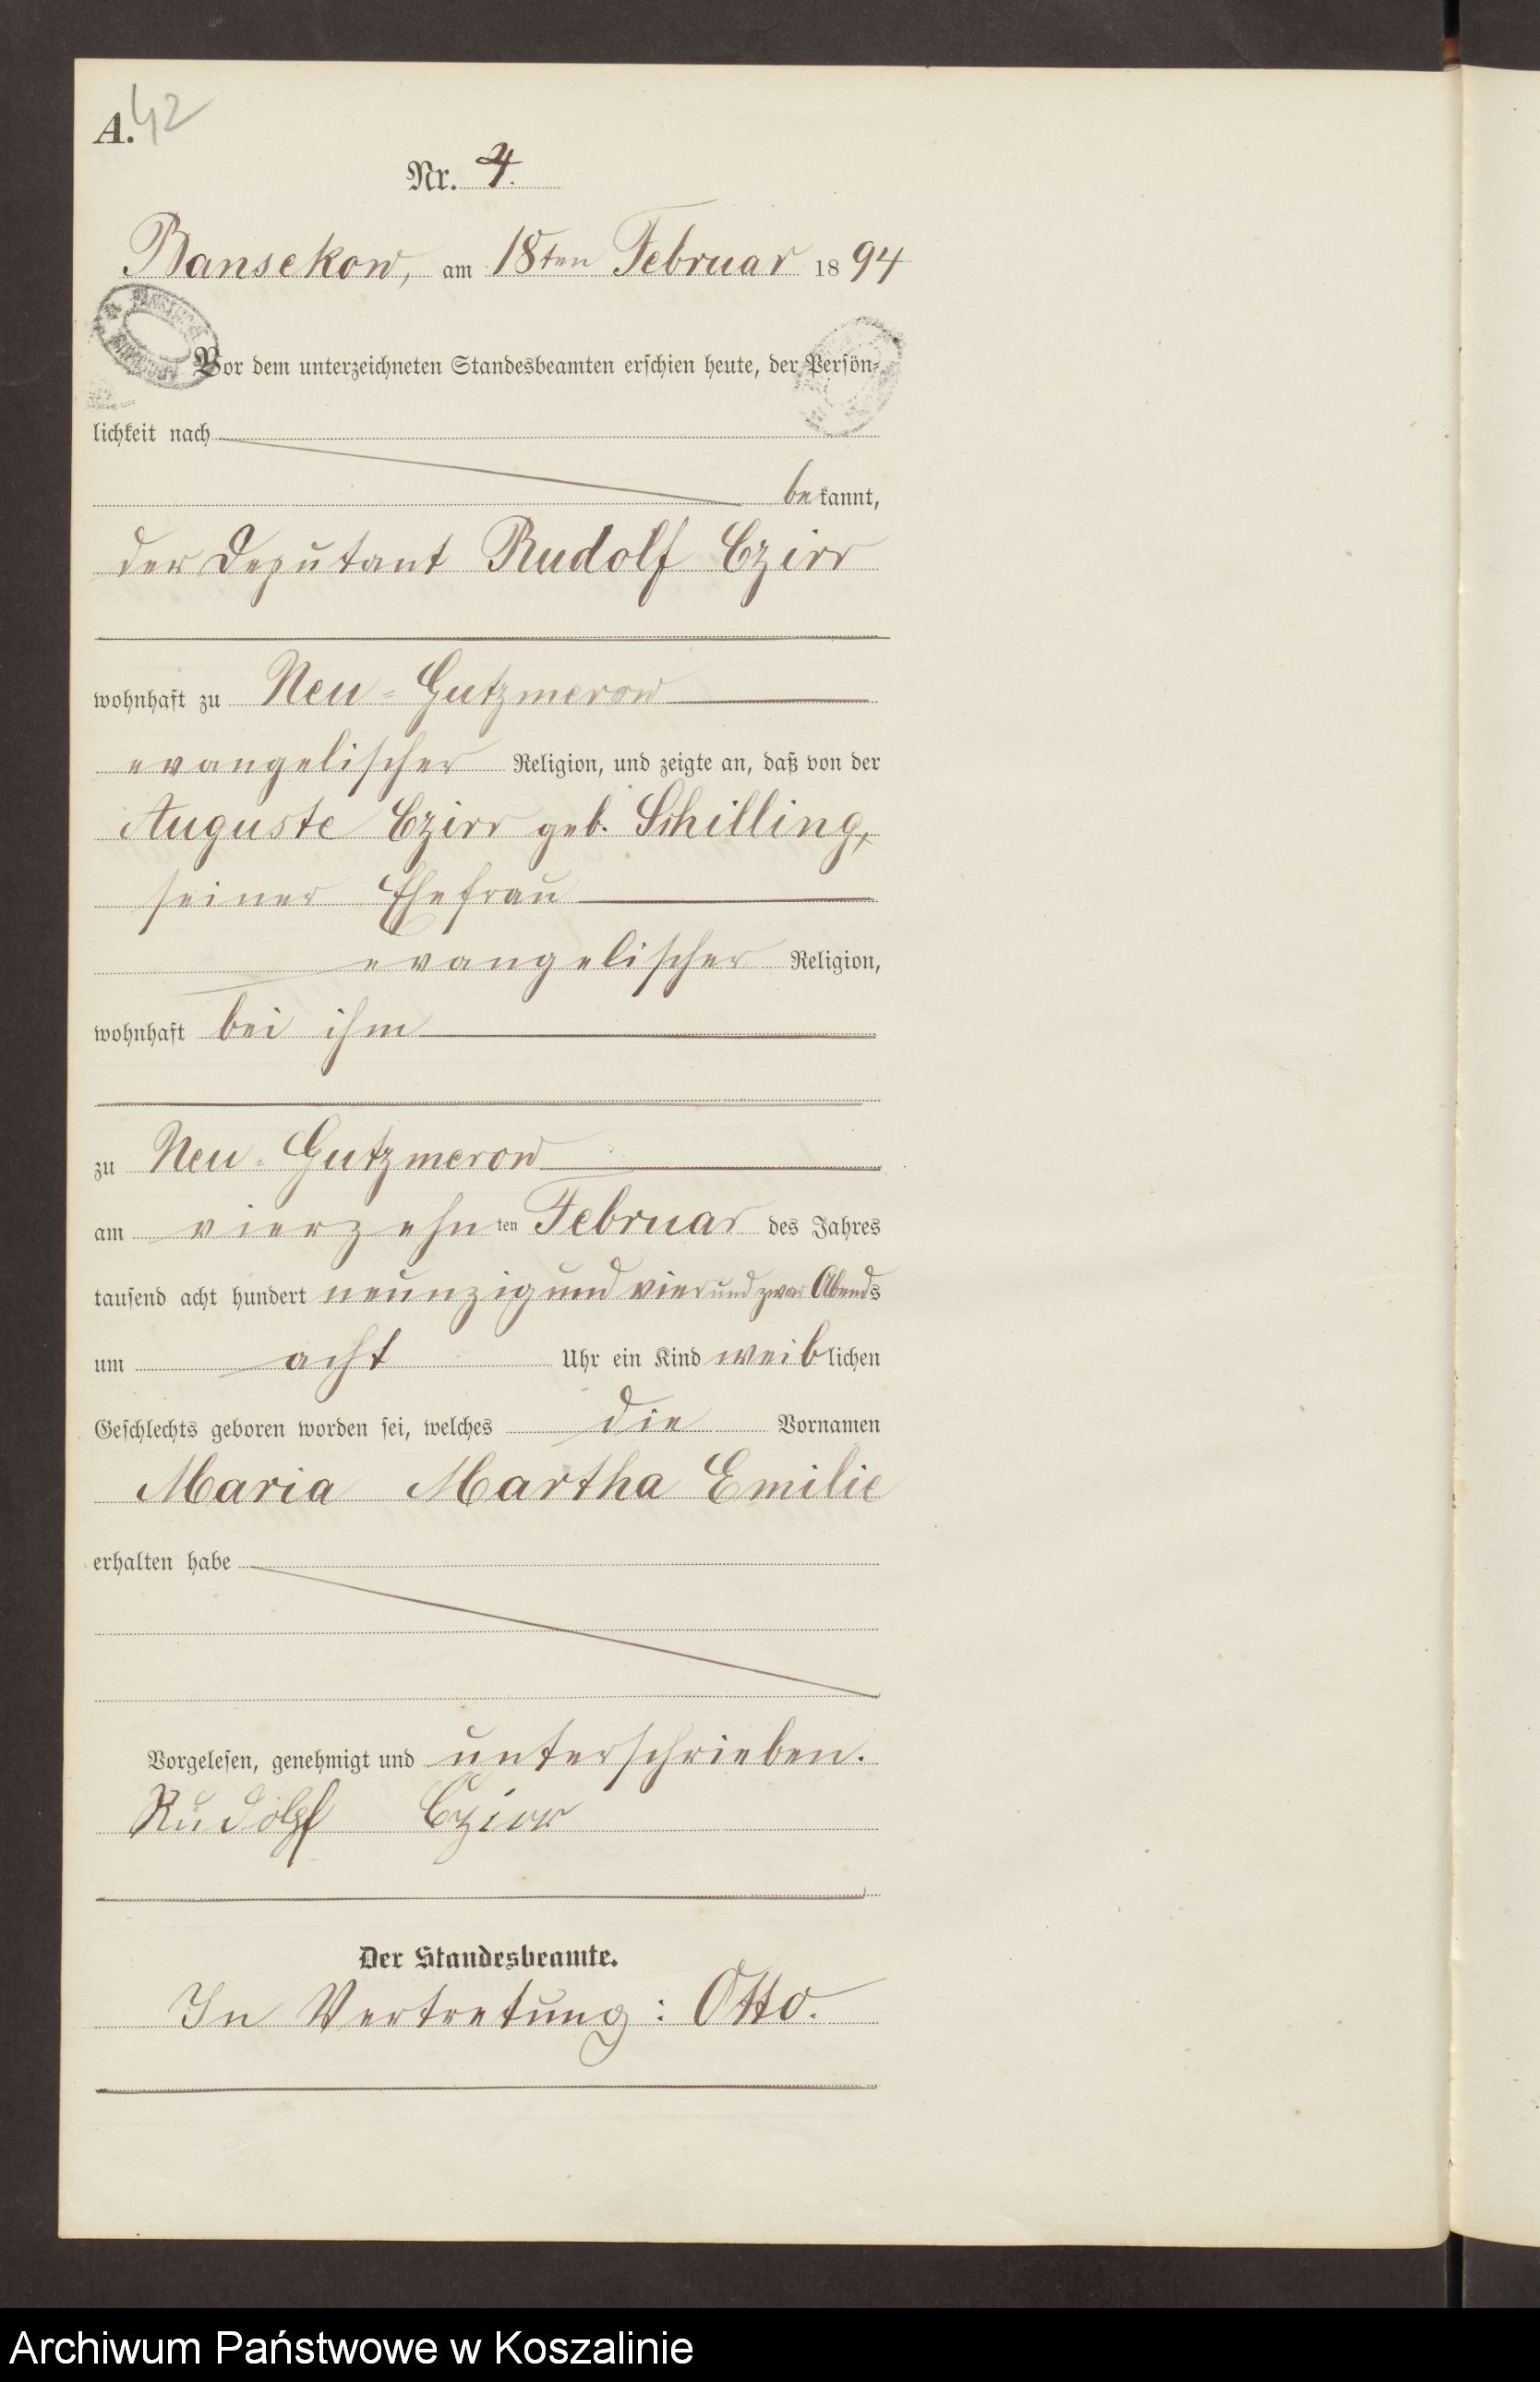 A. 42
Nr. 4.
Bansekow, am 18ten Februar 1894
Vor dem unterzeichneten Standesbeamten erschien heute, der Persön-
lichkeit nach
bekannt,
der Deputant Rudolf Czirr
wohnhaft zu Neu-Gutzmerow
evangelischer Religion, und zeigte an, daß von der
Auguste Czirr geb. Schilling,
seiner Ehefrau
evangelischer Religion,
wohnhaft bei ihm
zu Neu-Gutzmerow
am vierzehnten Februar des Jahres
tausend acht hundert neunzig und vier und zwar Abends
um acht Uhr ein Kind weiblichen
Geschlechts geboren worden sei, welches die Vornamen
Maria Martha Emilie
erhalten habe
Vorgelesen, genehmigt und unterschrieben.
Rudolf Czirr
Der Standesbeamte.
In Vertretung: Otto.
Archiwum Państwowe w Koszalinie